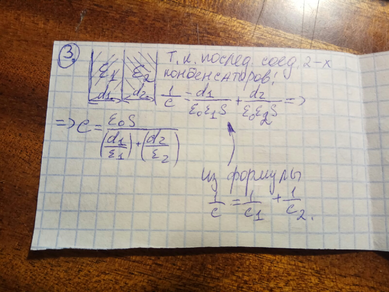 3. Т.к. послед. соед. 2-х
конденсаторов:
ε₁ ε₂
d₁ d₂
1/c = d₁/ε₀ε₁S + d₂/ε₀ε₂S =>
=> C = ε₀S/((d₁/ε₁) + (d₂/ε₂))
из формулы
1/c = 1/c₁ + 1/c₂.